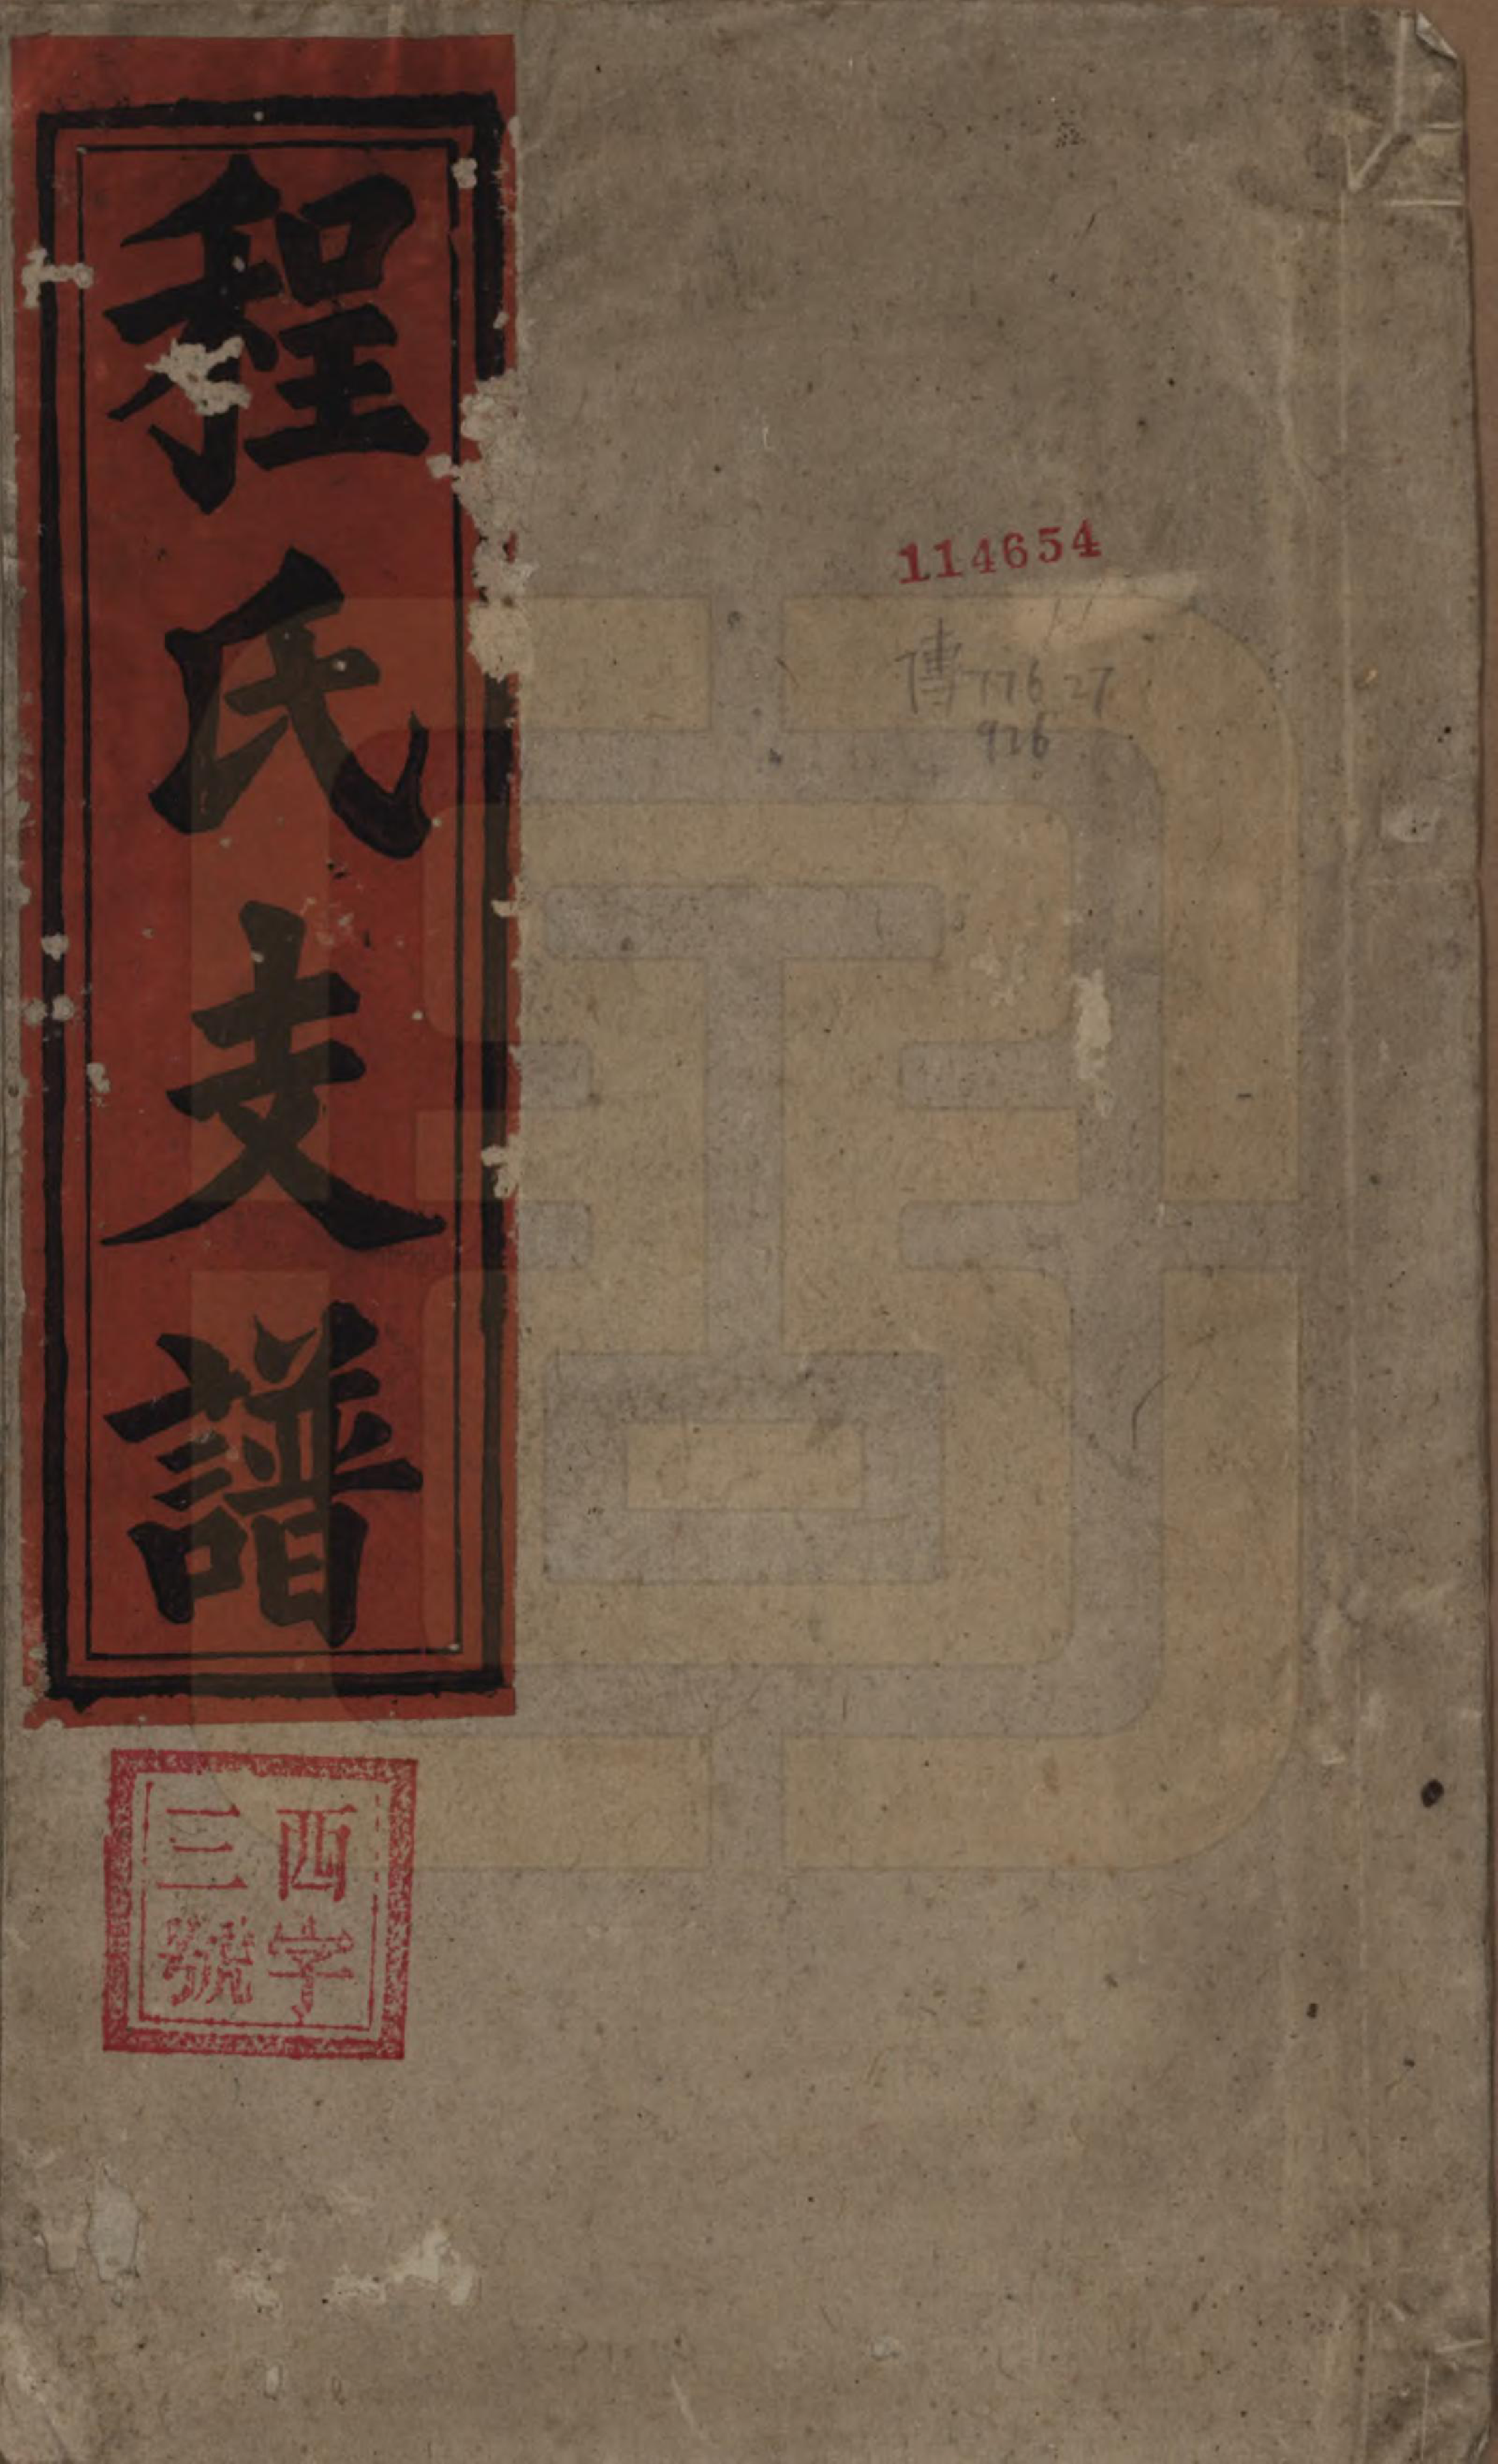 程氏支譜
114654
傳776.27
926
西字
三號